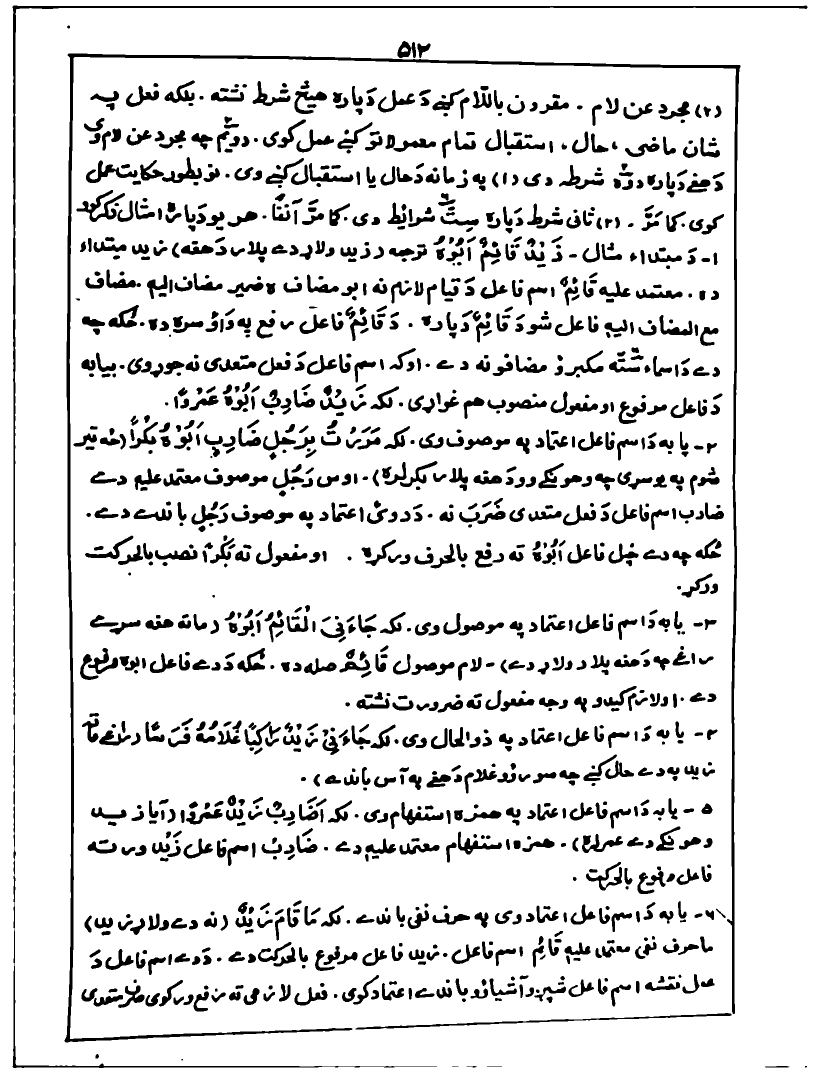 ۵۱۲
(۲) مجرد عن لام . مقرون باللّام کښے دَ عمل دَپاره هیڅ شرط نشته . بلکه فعل په
شان ماضی ، حال ، استقبال تمام معمولاتو کښے عمل کوی . دوئیم چه مجرد عن لام وی
دَهغے دَپاره دوه شرطه دی (۱) په زمانه دَحال یا استقبال کښے وی . نو بطور حکایت عمل
کوی . کما مَرَّ . (۲) ثانی شرط دَپاره سِتّ شرائط دی . کما مَرَّ آنفًا . هر یو دَپاره امثال ذکر کوو
۱- دَ مبتداء مثال - زَیْدٌ قَائِمٌ اَبُوْهُ ترجمه (زید ولاړ دے پلار دَهغه) زید مبتداء
ده . معتمد علیه قَائِمٌ اسم فاعل دَ قیام لازم نه ابو مضاف هٔ ضمیر مضاف الیه . مضاف
مع المضاف الیه فاعل شو دَ قَائِمٌ دَپاره . دَ قَائِمٌ فاعل رفع په واؤ سره ده . ځکه چه
دے دَ اسماء سِتّه مکبرؤ مضافو نه دے . اوکه اسم فاعل دَ فعل متعدی نه جوړ وی . بیا به
دَ فاعل مرفوع او مفعول منصوب هم غواړی . لکه زَیْدٌ ضَارِبٌ اَبُوْهُ عَمْرًوا .
۲- یا به دَ اسم فاعل اعتماد په موصوف وی . لکه مَرَرْتُ بِرَجُلٍ ضَارِبٍ اَبُوْهُ بَکْرًا (زه تیر
شوم په یو سړی چه وهونکے وو دَهغه پلار بکر لره) . اوس رَجُلٍ موصوف معتمد علیه دے
ضارب اسم فاعل دَ فعل متعدی ضَرَبَ نه . دَ دوئ اعتماد په موصوف رَجُلٍ باندے دے .
ځکه چه دے خپل فاعل اَبُوْهُ ته رفع بالحرف ورکړه . او مفعول ته بَکْرًا نصب بالحرکت
ورکړ .
۳- یا به دَ اسم فاعل اعتماد په موصول وی . لکه جَاءَنِیَ الْقَائِمُ اَبُوْهُ (ما ته هغه سړے
راغے چه دَهغه پلار ولاړ دے) - لام موصول قَائِمٌ صله ده . ځکه دَ دے فاعل ابوه مرفوع
دے . او لازم کیدو په وجه مفعول ته ضرورت نشته .
۴- یا به دَ اسم فاعل اعتماد په ذوالحال وی . لکه جَاءَنِیْ زَیْدٌ رَاکِبًا غُلَامُهٗ فَرَسًا (راغے ما ته
زید په دے حال کښے چه سور وُو غلام دَهغے په آس باندے) .
۵- یا به دَ اسم فاعل اعتماد په همزه استفهام وی . لکه اَضَارِبٌ زَیْدٌ عَمْرًوا (آیا زید
وهونکے دے عمر لره) . همزه استفهام معتمد علیه دے . ضَارِبٌ اسم فاعل زَیْدٌ ورته
فاعل مرفوع بالحرکت .
۶- یا به دَ اسم فاعل اعتماد وی په حرف نفی باندے . لکه مَا قَامَ زَیْدٌ (نه دے ولاړ زید)
ما حرف نفی معتمد علیه قَائِم اسم فاعل . زید فاعل مرفوع بالحرکت دے . دَ دے اسم فاعل دَ
عمل نقشه اسم فاعل شپږو آشیاؤ باندے اعتماد کوی . فعل لازمی ته رفع ورکوی متعدی